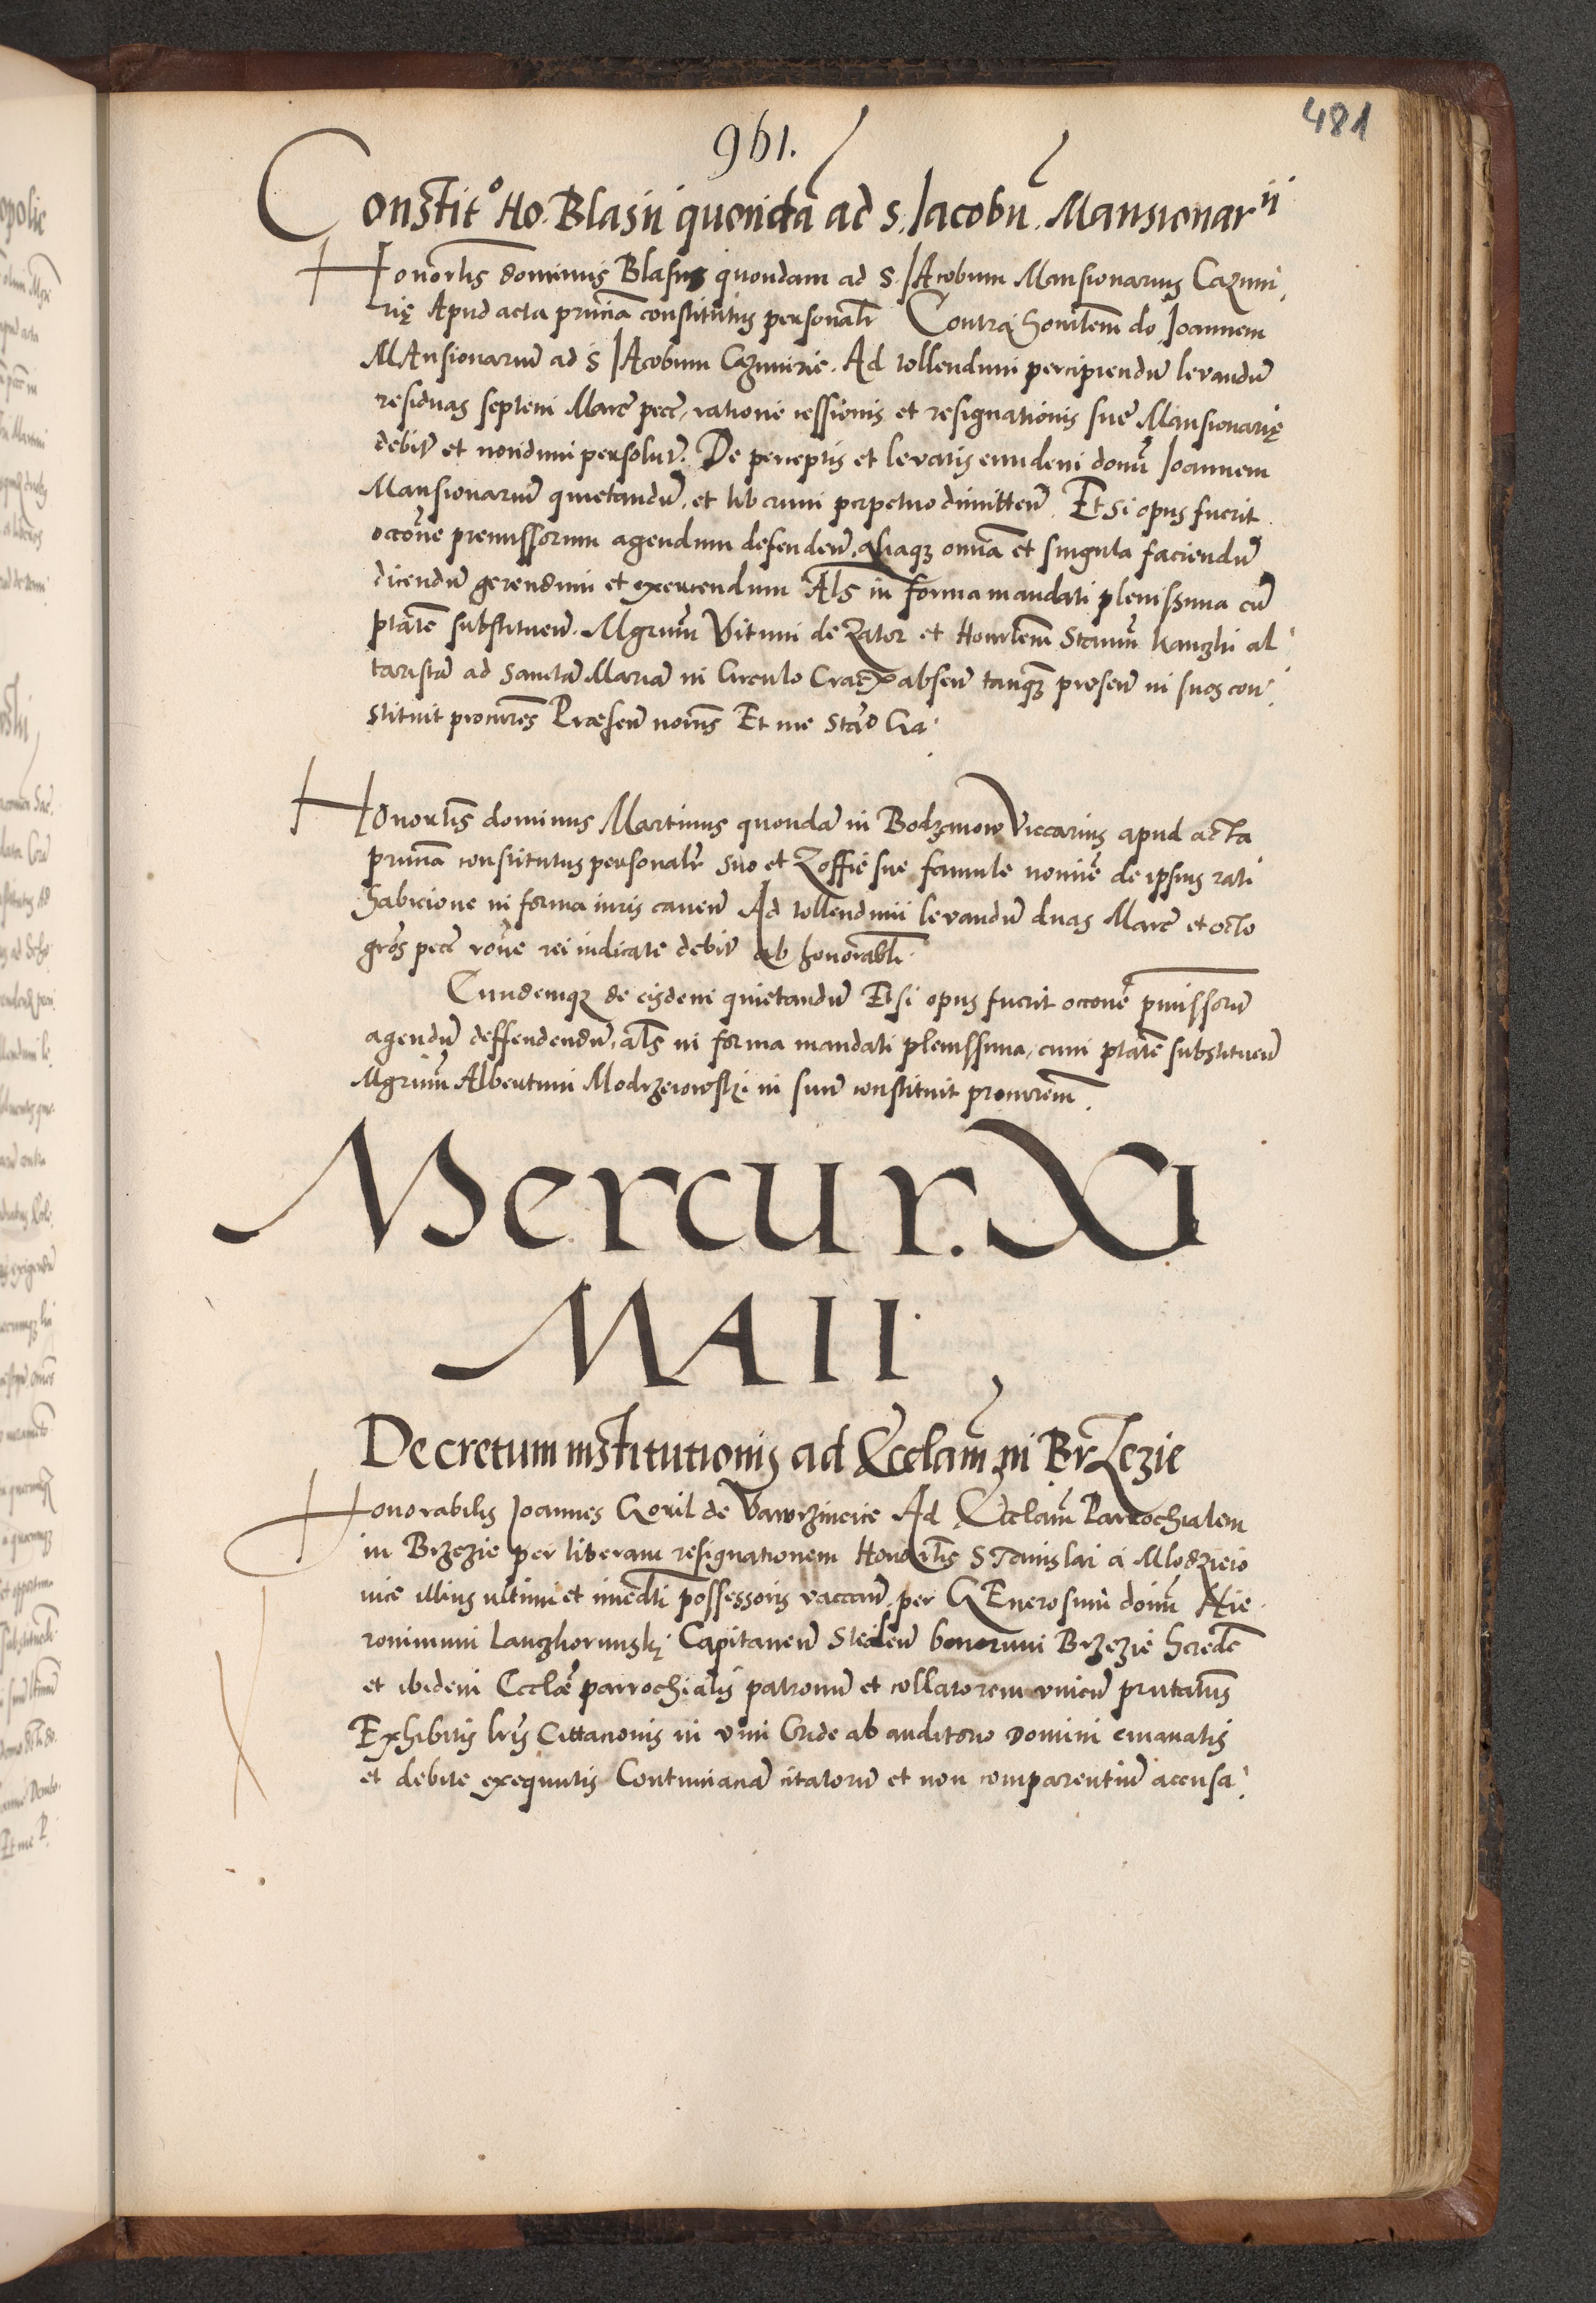 961.
481
Constit° Ho. Blasii quondā ad S. Jacobū. Mansionarii
Honorlis dominus Blasius quondam ad S. Jacobum Mansionarius Cazimi
rię Apud acta princia constitutus personalr Contra honorlem do. Joannem
Mansionariū ad S Jacobum Cazimirie. Ad tollendum percipiendū levandū
residuas septem Marc pecc, ratione cessionis et resignationis sue Mansionarię
debit et nondum persolut. De perceptis et levatis eundem domū Joannem
Mansionariū quietandū, et liberum perpetuo dimitten. Et si opus fuerit
occōne premissorum agendum defenden, aliaqz omīa et singula faciendū
dicendū gerendum et exercendum Als in forma mandati plenissima cū
ptātē substituen. Mgrūm Vitum de Zator et Honorlem Stanum Kanzki al
taristā ad Sanctā Mariā in Circulo Crac absen tanqz presen in suos con
stituit procures Præsen noīs Et me Staō Ga
Honorlis dominus Martinus quondā in Bodzanow Viccarius apud acta
princia constitutus personalr suo et Zoffie sue famule nomine de ipsius rati
habicione in forma iuris caven Ad tollendum levandū duas Marc et octo
gros pecc rone rei iudicate debit ab honorabli
Eundemqz de eisdem quietandū Et si opus fuerit occone pmissorū
agendū deffendendū, als in forma mandati plenissima, cum ptate substituen
Mgrūm Albertum Modrzewowski in suū constituit procurem.
Mercur. XI
MAII
Decretum institutionis ad Ecclam in Brzezie
Honorabilis Joannes Goril de Vawrzincice Ad Ecclam Parrochialem
in Brzezie per liberam resignationem Honorlis Stanislai a Mlodzieio
vice illius ultimi et imedti possessoris vaccan, per Generosum domū Hie
ronimum Lanczkorunski Capitaneū Steden bonorum Brzezie heredē
et ibidem Ecclæ parrochialis patronū et collatorem unicū pntatus
Exhibitis lris Cittacionis in vim Cride ab auditorio Domini emanatis
et debite exequutis Contumaciā citatorū et non comparentiū accusa